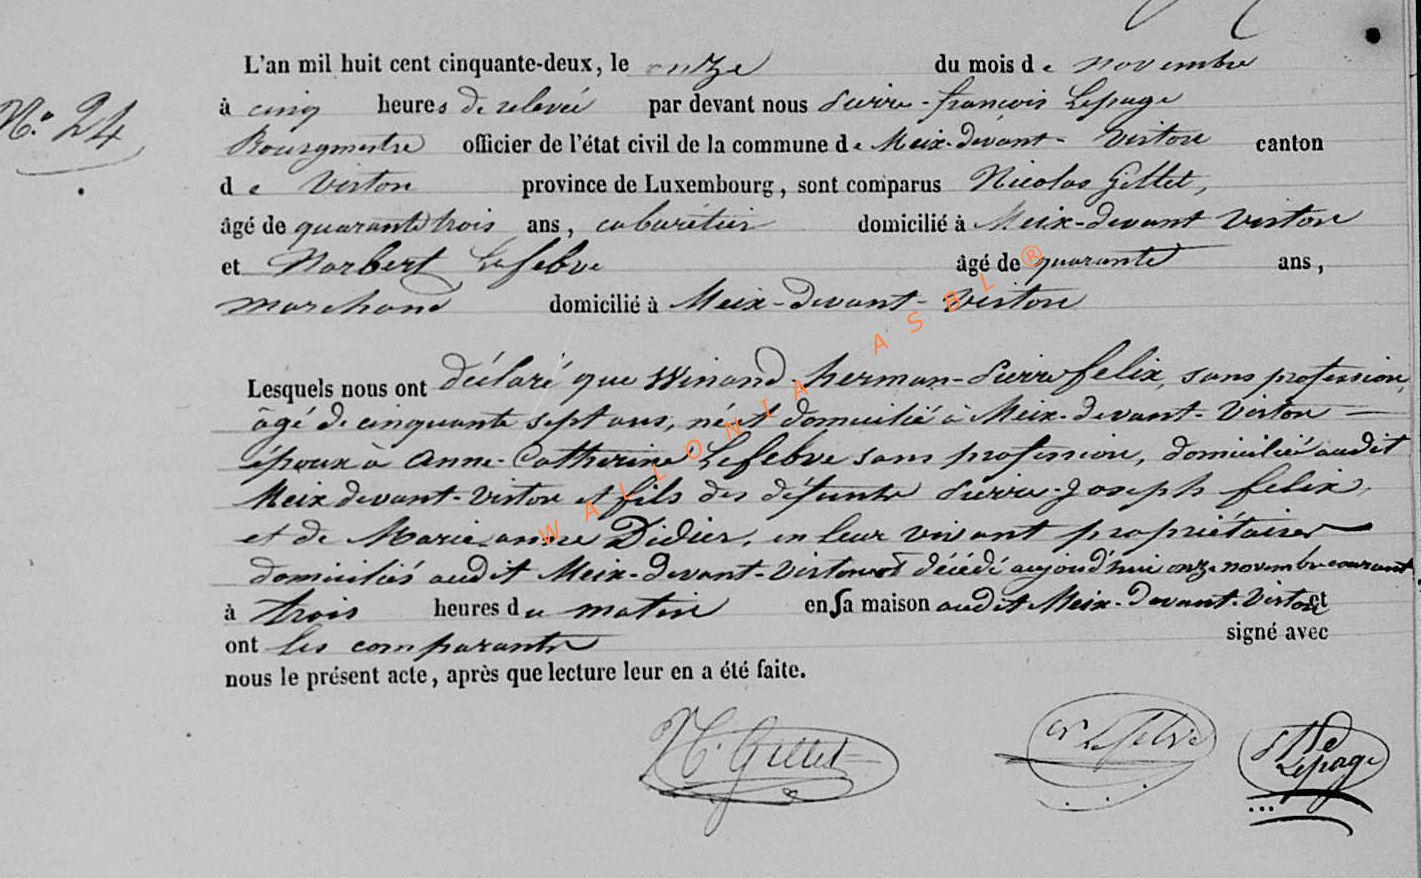 L'an mil huit cent cinquante-deux, le onze du mois de novembre
N.° 24
à cinq heures de relevée par devant nous Pierre-françois Lepage
Bourgmestre officier de l'état civil de la commune de Meix-devant-Virton canton
de Virton province de Luxembourg, sont comparus Nicolas Gillet,
âgé de quarante trois ans, cabaretier domicilié à Meix-devant Virton
et Norbert Lefebve âgé de quarante ans,
marchand domicilié à Meix-devant-Virton
Lesquels nous ont déclaré que Winand-herman-Pierre felix, sans profession,
âgé de cinquante sept ans, né et domicilié à Meix-devant-Virton —
époux à Anne-Catherine Lefebve sans profession, domiciliée audit
Meix devant-Virton et fils des défunts Pierre-Joseph felix,
et de Marie-anne Didier, en leur vivant propriétaires
domiciliés audit Meix-devant-Virton est décédé aujourd'hui onze novembre courant
à trois heures du matin en sa maison audit Meix-devant-Virton et
ont les comparants signé avec
nous le présent acte, après que lecture leur en a été faite.
N. Gillet Lefebve Lepage
WALLONIA ASBL ®